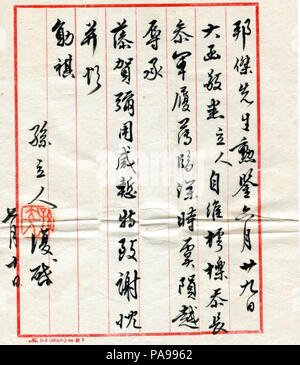 邦傑先生勳鑒六月廿九日
大函敬悉立人自維樗櫟忝長
参軍履薄臨深時虞隕越
辱承
藻賀彌用感慙特致謝忱
並頌
勛祺
孫立人復啟
月十日
alamy
PA9962